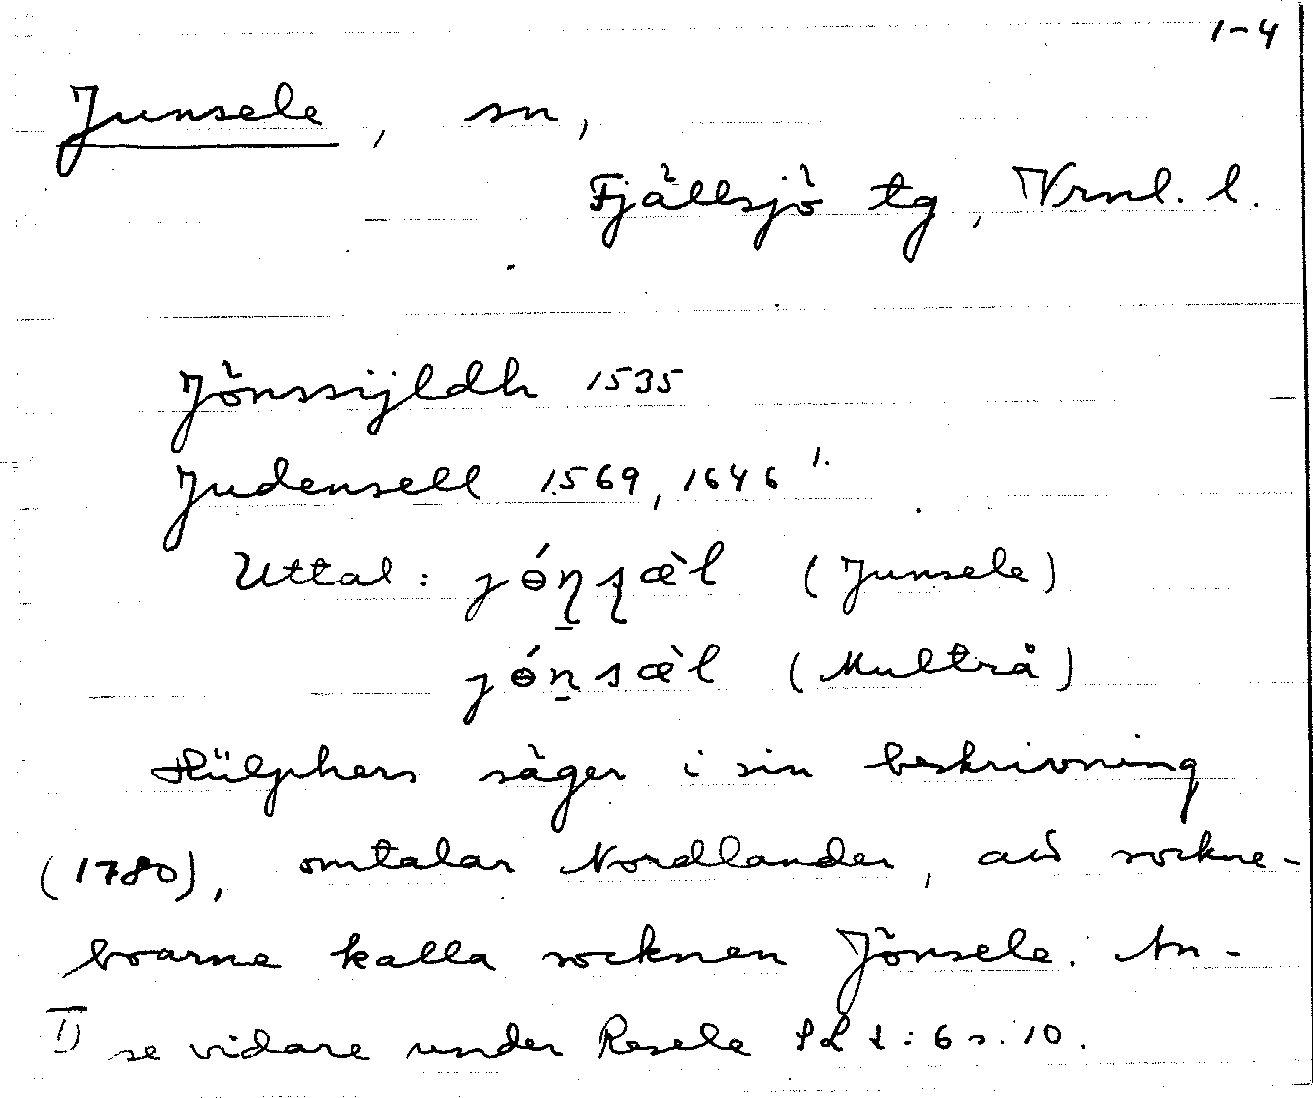 1-4
Junsele, sn,
Fjällsjö tg, Vrnl. l.
Jönssijldh 1535
Judensell 1569, 1646 1.
Uttal: jɵ́ṇʂæ̀l (Junsele)
jɵ́nsæ̀l (Multrå)
Hülphers säger i sin beskrivning
(1780), omtalar Nordlander, att sockne-
boarne kalla socknen Jönsele. An-
1) se vidare under Resele s. 10.